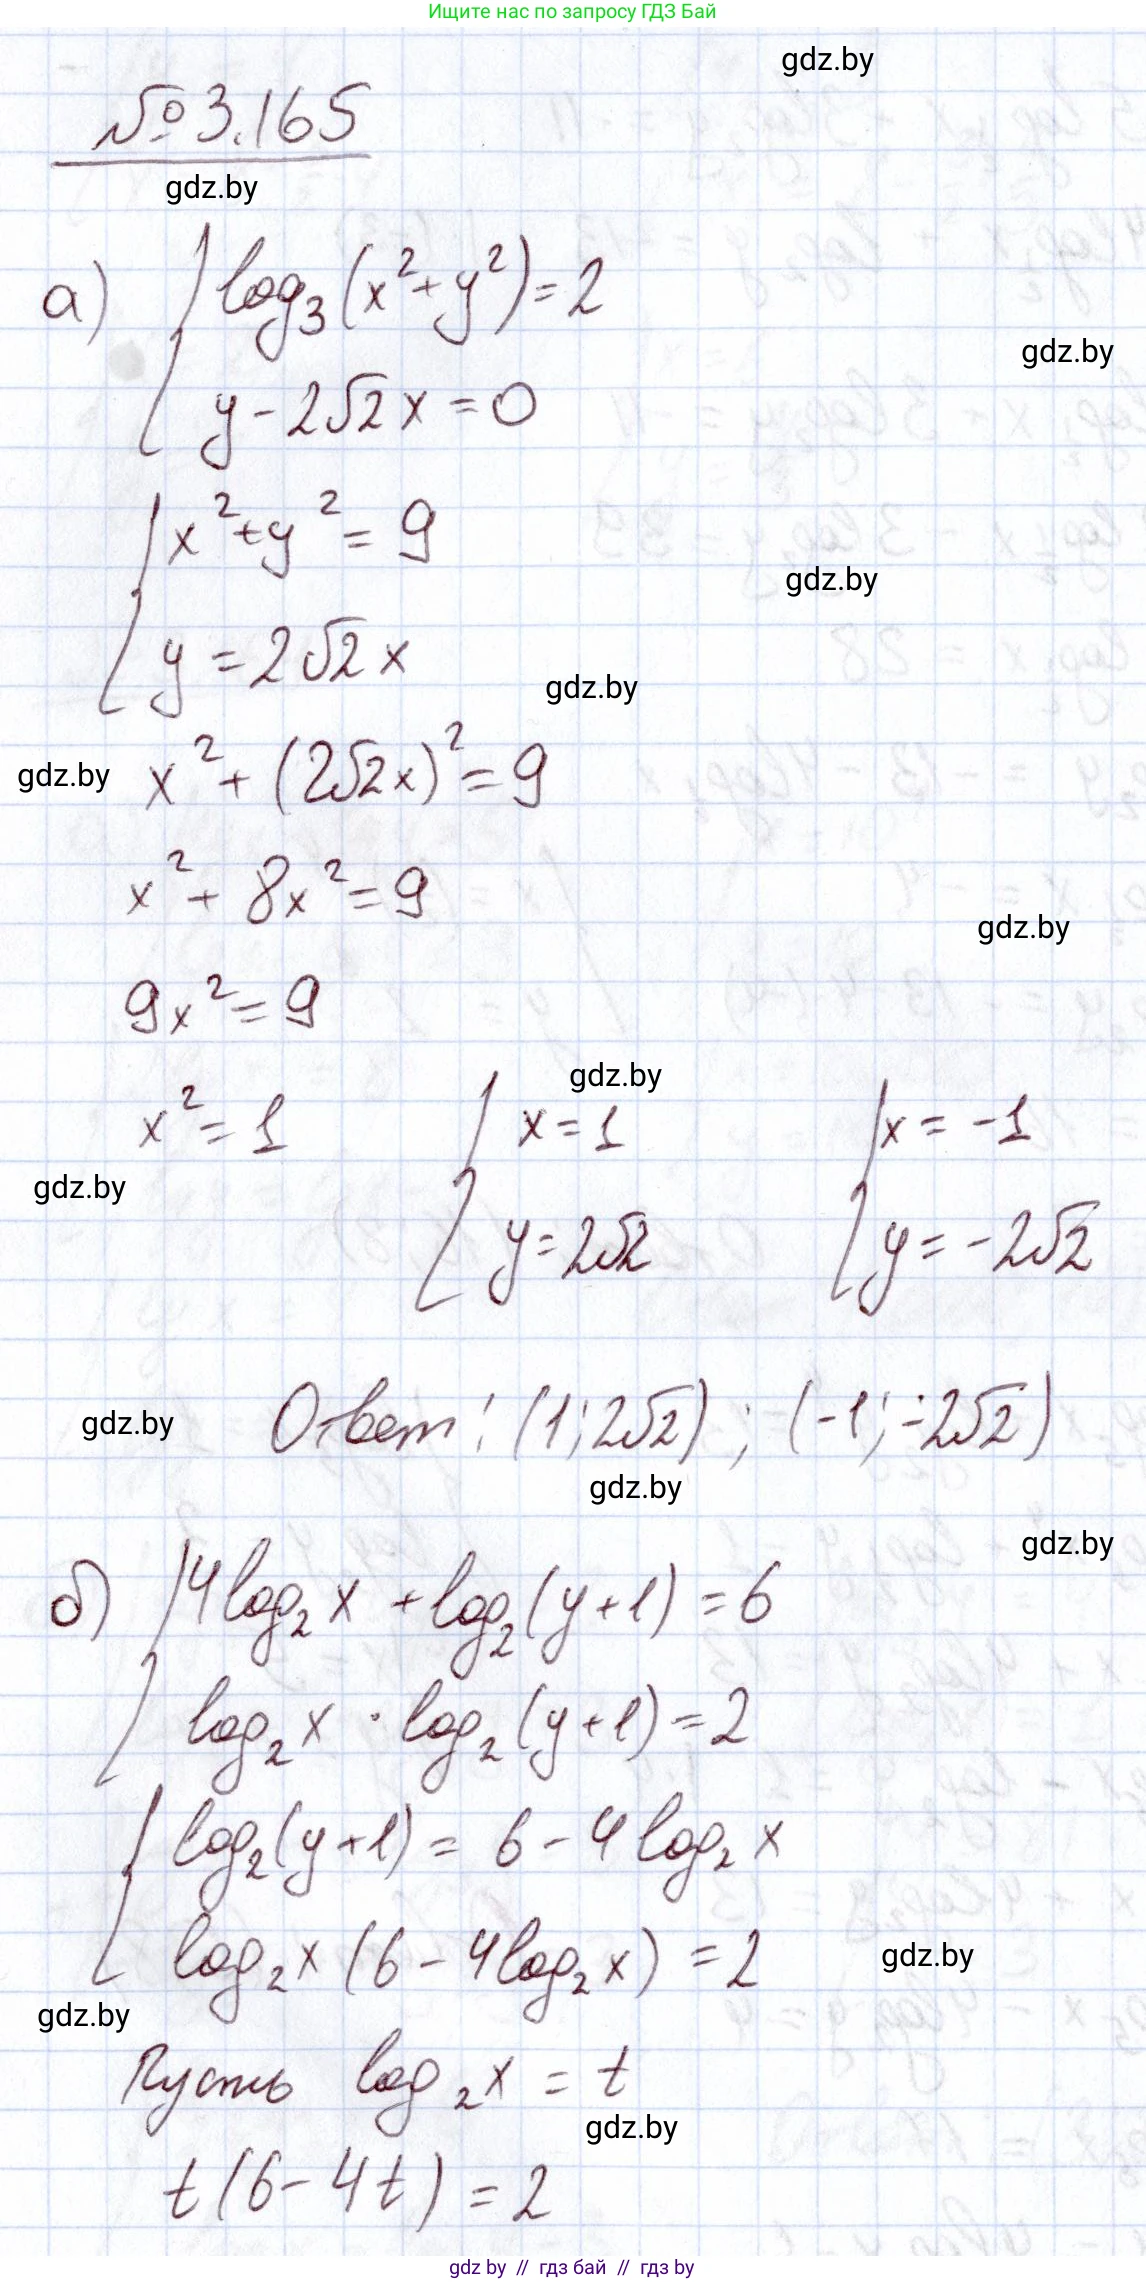 Ищите нас по запросу ГДЗ Бай
gdz.by
№ 3.165
gdz.by
а) { log₃(x² + y²) = 2
gdz.by
y - 2√2x = 0
{ x² + y² = 9
gdz.by
y = 2√2x
gdz.by
gdz.by
x² + (2√2x)² = 9
x² + 8x² = 9
gdz.by
9x² = 9
gdz.by
x² = 1 { x = 1 { x = -1
gdz.by
y = 2√2 y = -2√2
gdz.by
Ответ: (1; 2√2); (-1; -2√2)
gdz.by
gdz.by
б) { 4log₂x + log₂(y+1) = 6
log₂x · log₂(y+1) = 2
{ log₂(y+1) = 6 - 4log₂x
log₂x (6 - 4log₂x) = 2
gdz.by
gdz.by
Пусть log₂x = t
gdz.by
t(6 - 4t) = 2
gdz by // гдз бай // гдз by